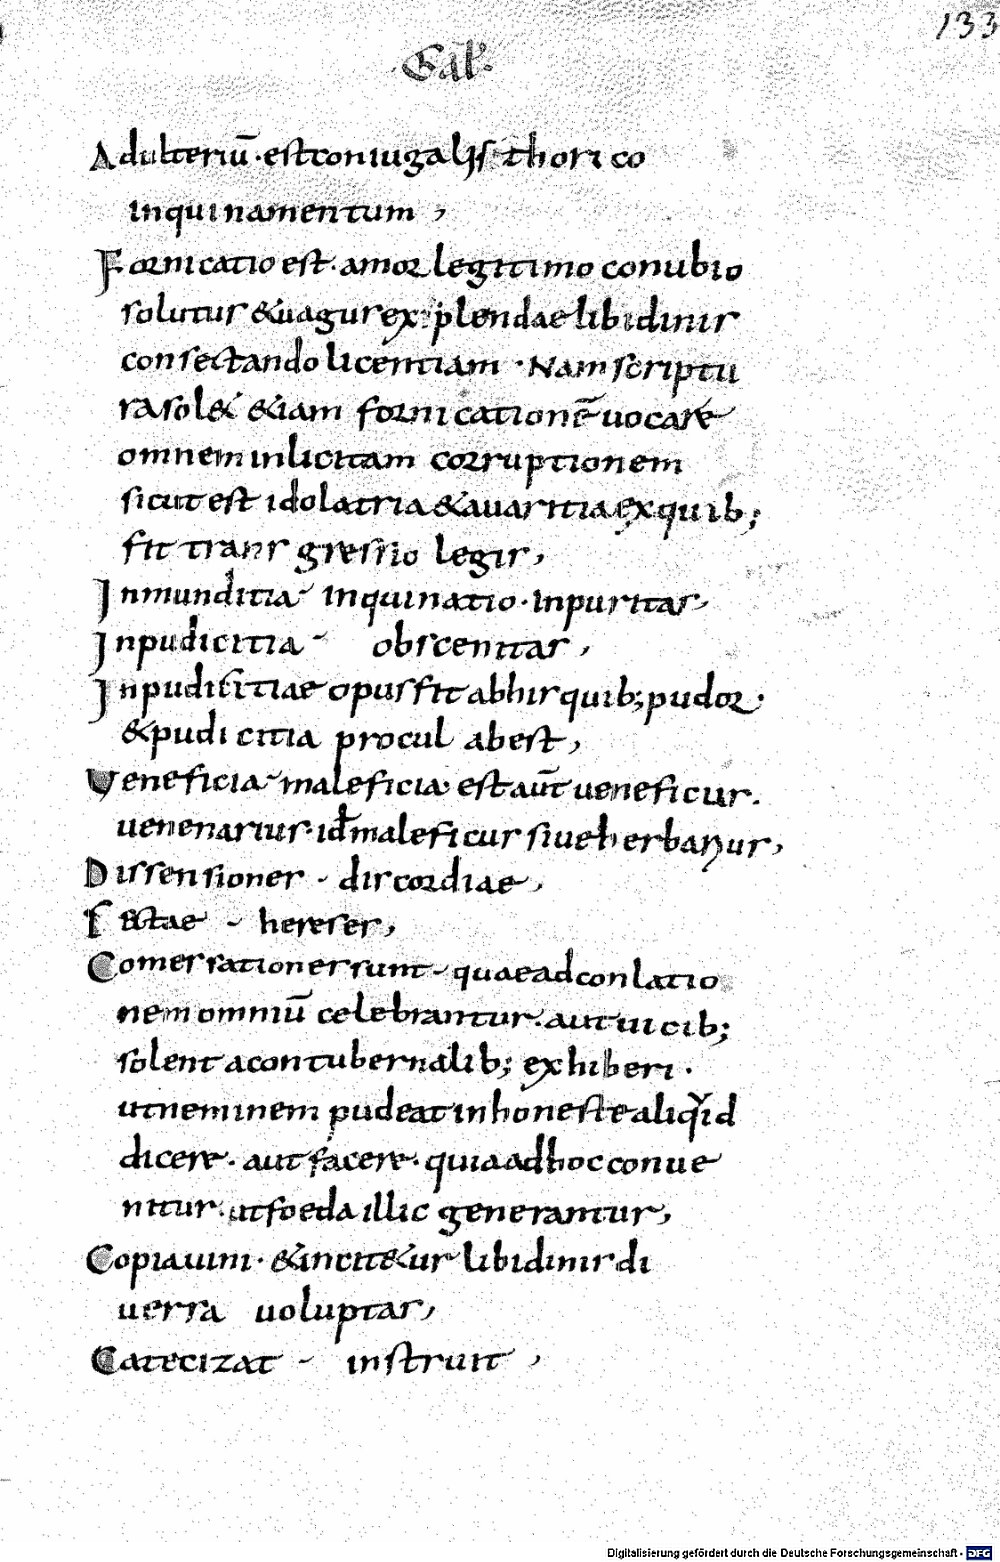 133
Gal.
Adulteriū · est coniugalis thori co
inquinamentum ,
Fornicatio est · amor legitimo conubio
solutus & uagus explendae libidinis
consectando licentiam · Nam scriptu
ra sol& &iam fornicationē uocare
omnem inlicitam corruptionem
sicut est idolatria & auaritia ex quib;
fit transgressio legis ,
Inmunditia - inquinatio · inpuritas ,
Inpudicitia - obscenitas ,
Inpudicitiae opus fit ab his quib; pudor ·
& pudicitia procul abest ,
Veneficia - maleficia est aūt ueneficus ·
uenenarius · id maleficus siue herbarius ,
Dissensiones - discordiae ,
Sectae - hereses ,
Comessationes sunt - quae ad conlatio
nem omniū celebrantur · aut uicib;
solent a contubernalib; exhiberi ·
ut neminem pudeat inhoneste aliqid
dicere · aut facere · quia ad hoc conue
nitur · ut foeda illic generantur ,
Copia uini · & incit&ur libidinis di
uersa uoluptas ,
Catecizat - instruit ,
Digitalisierung gefördert durch die Deutsche Forschungsgemeinschaft - DFG